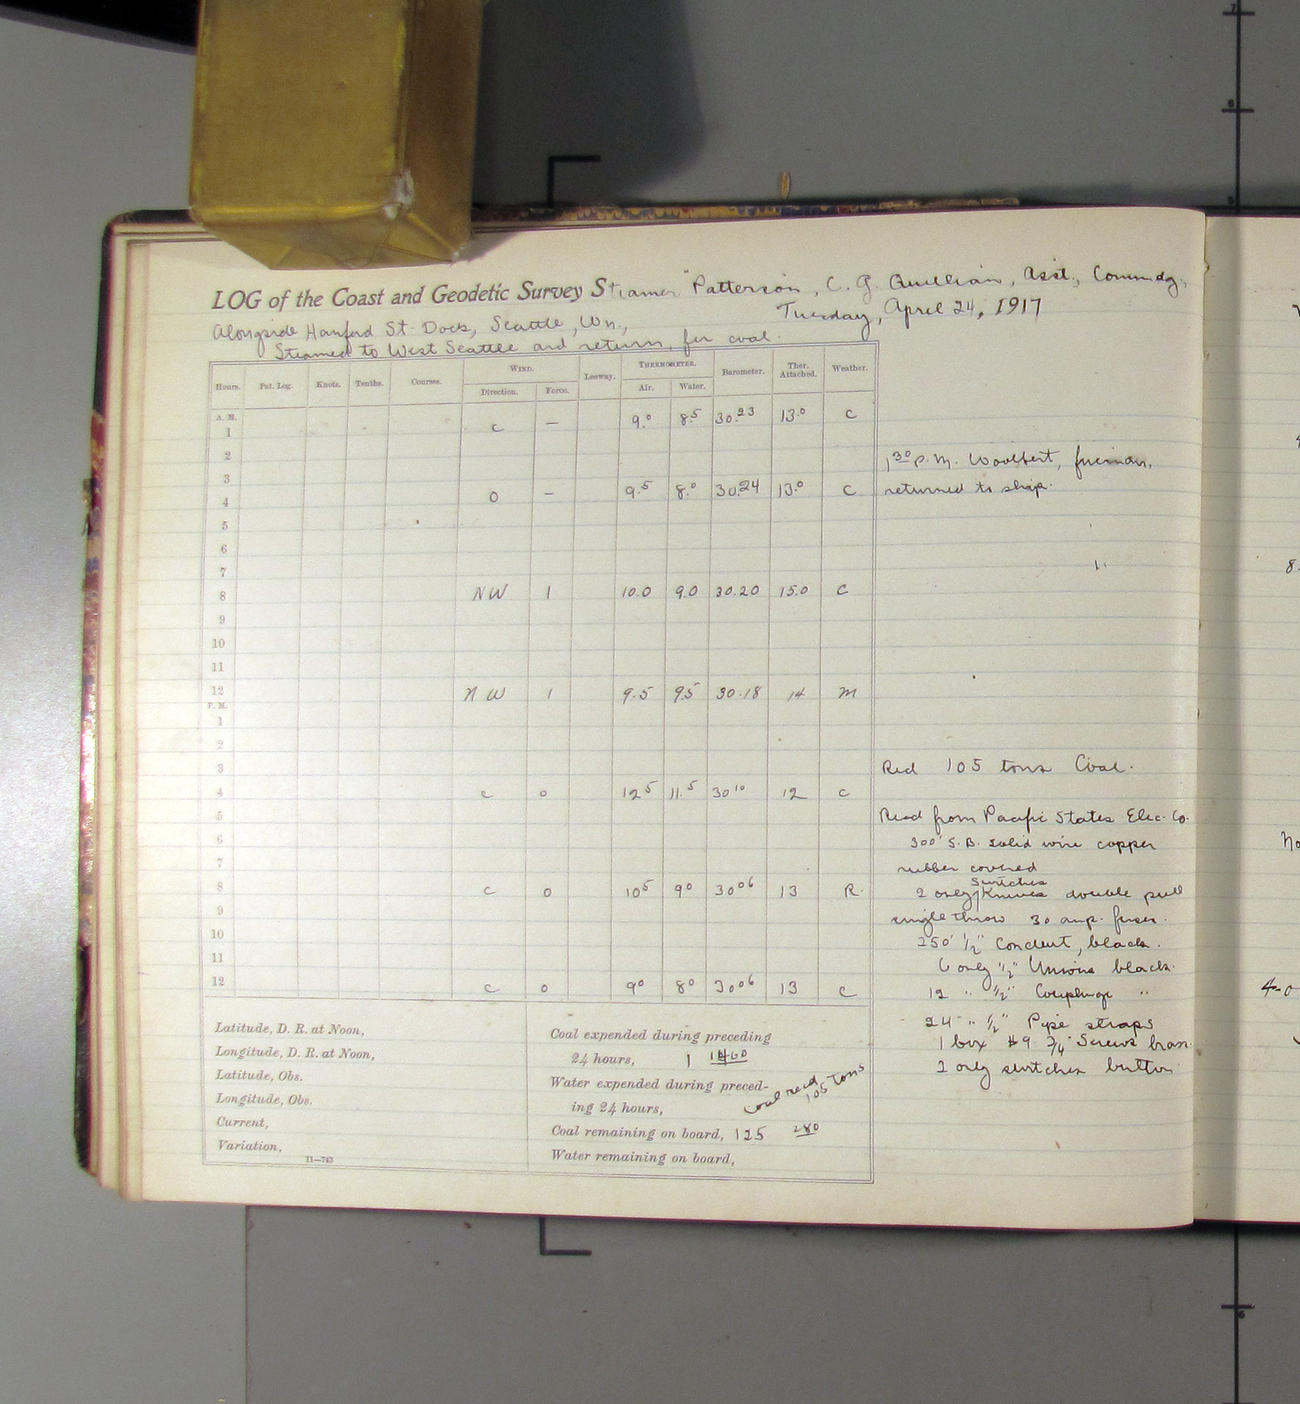 LOG of the Coast and Geodetic Survey Steamer "Patterson, C. G. Quillian, Asst., Commdg.,
Alongside Hanford St. Dock, Seattle, Wn., Tuesday, April 24, 1917
Steamed to West Seattle and return, for coal.
Hours. Pat. Log. Knots. Tenths. Courses. WIND. Leeway. THERMOMETER. Barometer. Ther. Attached. Weather.
Direction. Force. Air. Water.
A. M.
1 c — 9.0 8.5 30.23 13.0 c
2 1 30 P.M. Woolbert, fireman,
3
4 0 — 9.5 8.0 30.24 13.0 c returned to ship.
5
6
7
8 NW 1 10.0 9.0 30.20 15.0 c
9
10
11
12 NW 1 9.5 9.5 30.18 14 m
P. M.
1
2
3 Recd 105 tons Coal.
4 c 0 12 5 11.5 30 10 12 c
5 Recd from Pacific States Elec. Co.
6 300' S.B. solid wire copper
7 rubber covered
Switches
8 c 0 10 5 9 0 30 06 13 R. 2 only Knives double pull
9 single throw 30 amp. fuses.
10 250' 1/2" Conduit, black.
11 6 only 1/2" Unions black.
12 c 0 9 0 8 0 30 06 13 c 12 " 1/2" Couplings "
24 " 1/2" Pipe straps
1 box #9 3/4" Screws brass
2 only switches button
Latitude, D. R. at Noon, Coal expended during preceding
Longitude, D. R. at Noon, 24 hours, 1
Latitude, Obs. Water expended during preced-
Longitude, Obs. ing 24 hours,
Coal recd 105 tons
Current, Coal remaining on board, 125 280
Variation, Water remaining on board,
11—743